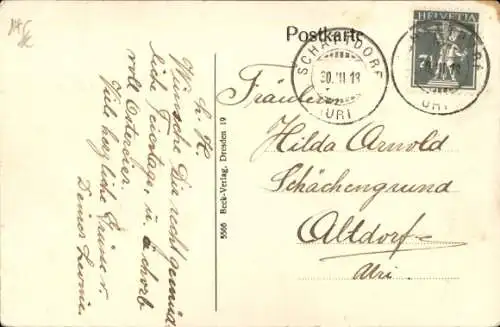 Postkarte
HELVETIA
SCHATTDORF
30.III.18
(URI)
L. H.
Wünsche Dir recht gemüt-
liche Feiertage u. 1 chorb
voll Ostereier.
Viele herzliche Grüsse v.
Deiner
5566 Beck-Verlag, Dresden 19
Fräulein
Hilda Arnold
Schächengrund
Altdorf
Uri.